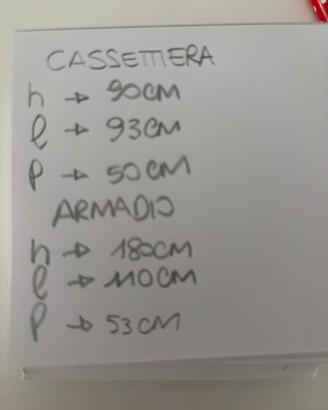 CASSETTIERA
h → 90CM
l → 93CM
p → 50CM
ARMADIO
h → 180CM
l → 110CM
p → 53CM